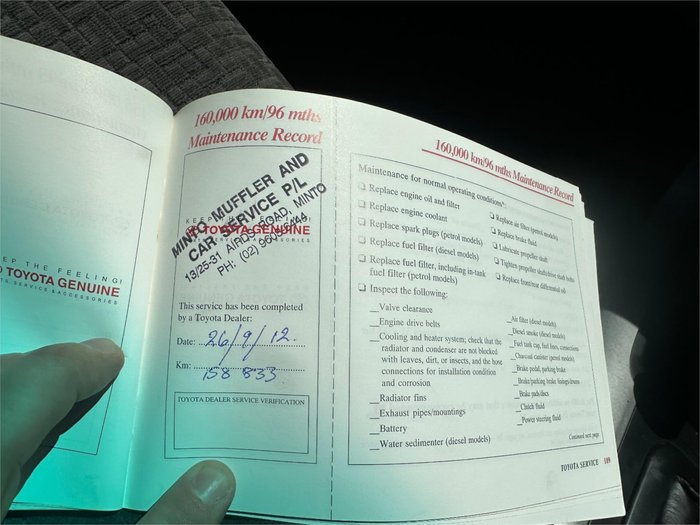 EP THE FEELING!
TOYOTA GENUINE
SERVICE & ACCESSORIES
160,000 km/96 mths
Maintenance Record
MINTO MUFFLER AND
CAR SERVICE P/L
13/25-31 AIRDS ROAD, MINTO
PH: (02)
TOYOTA GENUINE
This service has been completed
by a Toyota Dealer:
Date: 26/9/12
Km: 158 833
TOYOTA DEALER SERVICE VERIFICATION
160,000 km/96 mths Maintenance Record
Maintenance for normal operating conditions*:
Replace engine oil and filter
Replace engine coolant
Replace spark plugs (petrol models)
Replace fuel filter (diesel models)
Replace fuel filter, including in-tank
fuel filter (petrol models)
Inspect the following:
Valve clearance
Engine drive belts
Cooling and heater system; check that the
radiator and condenser are not blocked
with leaves, dirt, or insects, and the hose
connections for installation condition
and corrosion
Radiator fins
Exhaust pipes/mountings
Battery
Water sedimenter (diesel models)
Replace air filter (petrol models)
Replace brake fluid
Lubricate propeller shaft
Tighten propeller shaft/drive shaft bolts
Replace front/rear differential oil
Air filter (diesel models)
Diesel smoke (diesel models)
Fuel tank cap, fuel lines, connections
Charcoal canister (petrol models)
Brake pedal, parking brake
Brake/parking brake linings/drums
Brake pads/discs
Clutch fluid
Power steering fluid
Continued next page
TOYOTA SERVICE 109